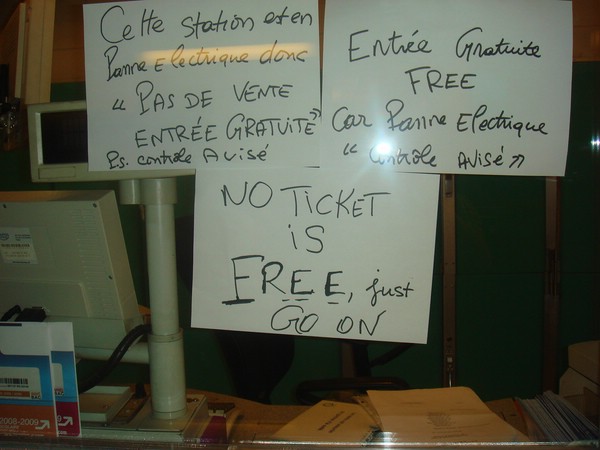 Cette station est en
Panne Electrique donc
« PAS DE VENTE
ENTRÉE GRATUITE »
Ps. contrôle AVISÉ
Entrée Gratuite
FREE
Car Panne Electrique
« contrôle AVISÉ »
NO TICKET
iS
FREE, just
GO ON
2008-2009